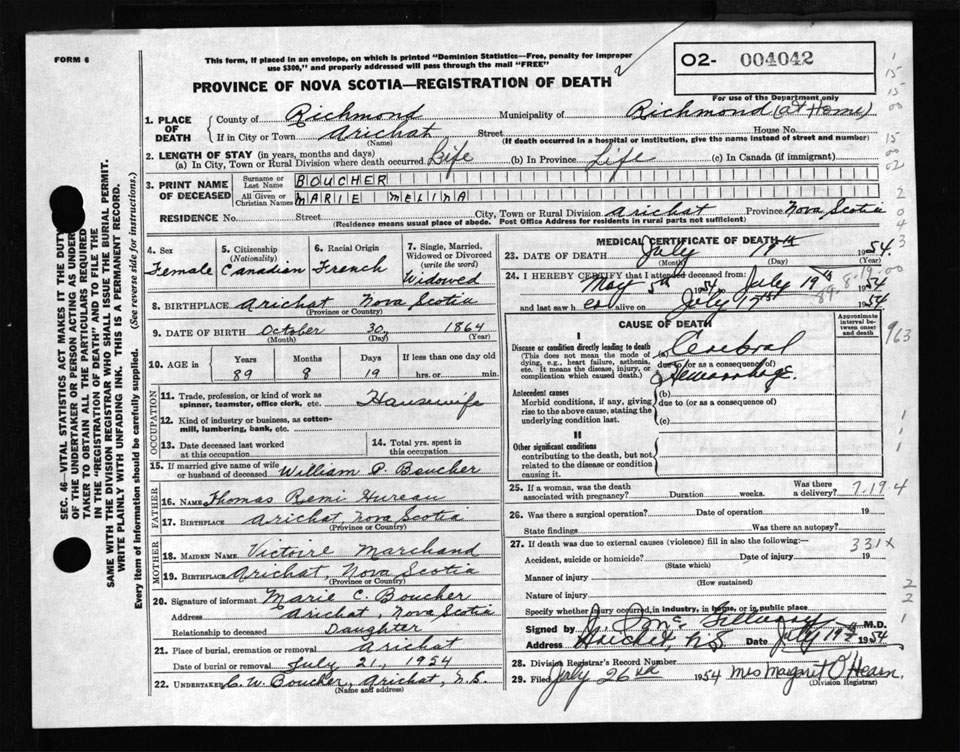 FORM 6
This form, if placed in an envelope, on which is printed "Dominion Statistics—Free, penalty for improper
use $300," and properly addressed will pass through the mail "FREE"
PROVINCE OF NOVA SCOTIA—REGISTRATION OF DEATH
O2- 004042
For use of the Department only
1. PLACE OF DEATH
County of Richmond Municipality of Richmond (at Home)
If in City or Town Arichat Street House No.
(Name) (If death occurred in a hospital or institution, give the name instead of street and number)
2. LENGTH OF STAY (in years, months and days)
(a) In City, Town or Rural Division where death occurred Life (b) In Province Life (c) In Canada (if immigrant)
3. PRINT NAME OF DECEASED
Surname or Last Name BOUCHER
All Given or Christian Names MARIE MELINA
RESIDENCE No. Street City, Town or Rural Division Arichat Province Nova Scotia
(Residence means usual place of abode. Post Office Address for residents in rural parts not sufficient)
4. Sex Female
5. Citizenship (Nationality) Canadian
6. Racial Origin French
7. Single, Married, Widowed or Divorced (write the word) Widowed
8. BIRTHPLACE Arichat Nova Scotia
(Province or Country)
9. DATE OF BIRTH October 30, 1864
(Month) (Day) (Year)
10. AGE in Years Months Days If less than one day old
89 8 19 hrs. or min.
OCCUPATION
11. Trade, profession or kind of work as
spinner, teamster, office clerk, etc. Housewife
12. Kind of industry or business, as cotten-
mill, lumbering, bank, etc.
13. Date deceased last worked
at this occupation
14. Total yrs. spent in
this occupation
15. If married give name of wife
or husband of deceased William P. Boucher
FATHER
16. NAME Thomas Remi Hureau
17. BIRTHPLACE Arichat Nova Scotia
(Province or Country)
MOTHER
18. MAIDEN NAME Victoire Marchand
19. BIRTHPLACE Arichat, Nova Scotia
(Province or Country)
20. Signature of informant Marie C. Boucher
Address Arichat, Nova Scotia
Relationship to deceased Daughter
21. Place of burial, cremation or removal Arichat
Date of burial or removal July 21, 1954
22. UNDERTAKER C. W. Boucher, Arichat, N.S.
(Name and address)
MEDICAL CERTIFICATE OF DEATH
23. DATE OF DEATH July 1954
(Month) (Day)
24. I HEREBY CERTIFY that I attended deceased from
May 5th 1954 to July 19th 1954
and last saw h er alive on July 17th 1954
CAUSE OF DEATH
Approximate interval between onset and death
I
Disease or condition directly leading to death
(This does not mean the mode of
dying, e.g., heart failure, asthenia,
etc. It means the disease, injury, or
complication which caused death.)
(a) Cerebral
due to (or as a consequence of)
Hemorrhage
Antecedent causes
Morbid conditions, if any, giving
rise to the above cause, stating the
underlying condition last.
(b)
due to (or as a consequence of)
(c)
II
Other significant conditions
contributing to the death, but not
related to the disease or condition
causing it.
25. If a woman, was the death
associated with pregnancy? Duration weeks. Was there a delivery? 7.19 4
26. Was there a surgical operation? Date of operation 19
State findings Was there an autopsy?
27. If death was due to external causes (violence) fill in also the following:— 331X
Accident, suicide or homicide? Date of injury 19
(State which)
Manner of injury
(How sustained)
Nature of injury
Specify whether injury occurred, in industry, in home, or in public place
Signed by M.D.
Address Arichat, N.S. Date July 19th 1954
28. Division Registrar's Record Number
29. Filed July 26 1954 Mrs Margaret O'Hearn.
(Division Registrar)
SEC. 46—VITAL STATISTICS ACT MAKES IT THE DUTY
OF THE UNDERTAKER OR PERSON ACTING AS UNDER-
TAKER TO OBTAIN ALL THE PARTICULARS REQUIRED
IN THE "REGISTRATION OF DEATH" AND TO FILE THE
SAME WITH THE DIVISION REGISTRAR WHO SHALL ISSUE THE BURIAL PERMIT.
WRITE PLAINLY WITH UNFADING INK. THIS IS A PERMANENT RECORD.
Every item of information should be carefully supplied. (See reverse side for instructions.)